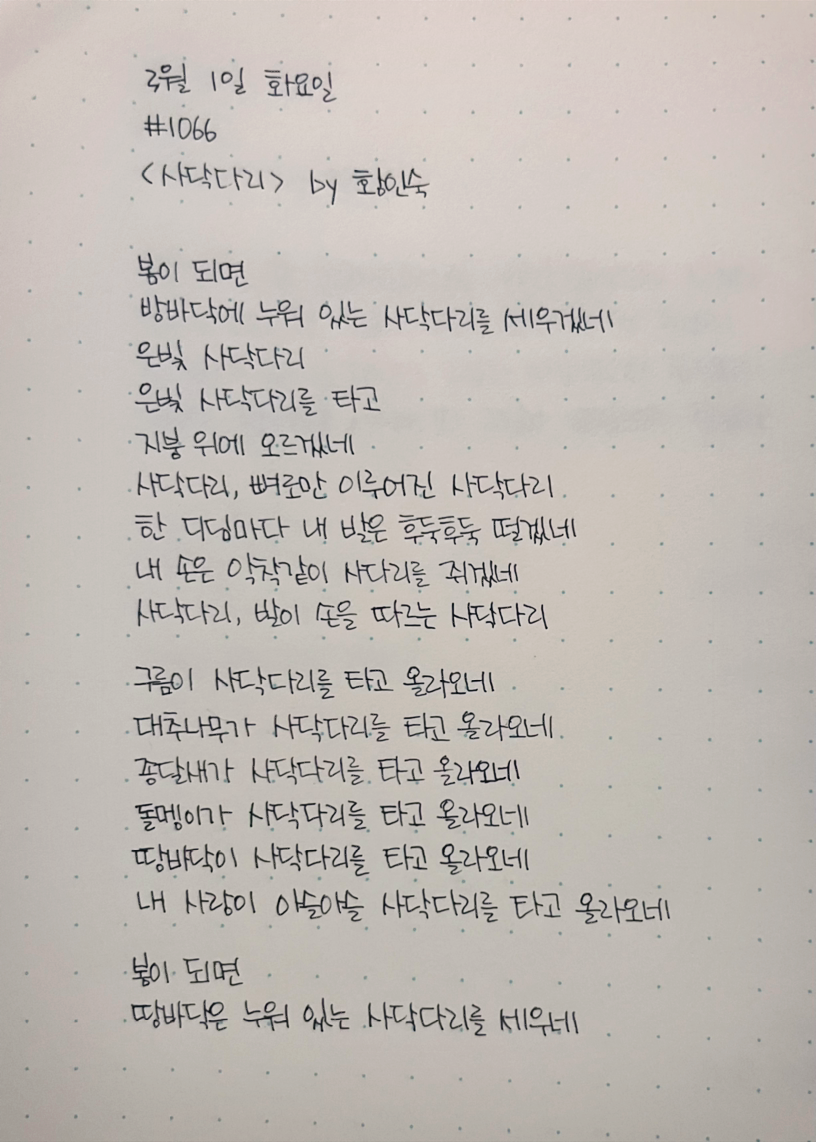 3월 1일 화요일
#1066
<사닥다리> by 황인숙
봄이 되면
방바닥에 누워 있는 사닥다리를 세우겠네
은빛 사닥다리
은빛 사닥다리를 타고
지붕 위에 오르겠네
사닥다리, 뼈로만 이루어진 사닥다리
한 디딤마다 내 발은 후둑후둑 떨겠네
내 손은 악착같이 사다리를 쥐겠네
사닥다리, 발이 손을 따르는 사닥다리
구름이 사닥다리를 타고 올라오네
대추나무가 사닥다리를 타고 올라오네
종달새가 사닥다리를 타고 올라오네
돌멩이가 사닥다리를 타고 올라오네
땅바닥이 사닥다리를 타고 올라오네
내 사랑이 아슬아슬 사닥다리를 타고 올라오네
봄이 되면
땅바닥은 누워 있는 사닥다리를 세우네